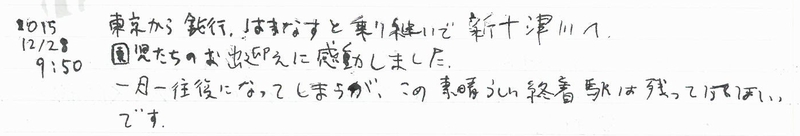 2015
12/28
9:50
東京から鈍行、はまなすと乗り継いで 新十津川へ.
園児たちのお出迎えに感動しました.
一日一往復になってしまうが、この素晴らしい終着駅は残ってほしい
です.